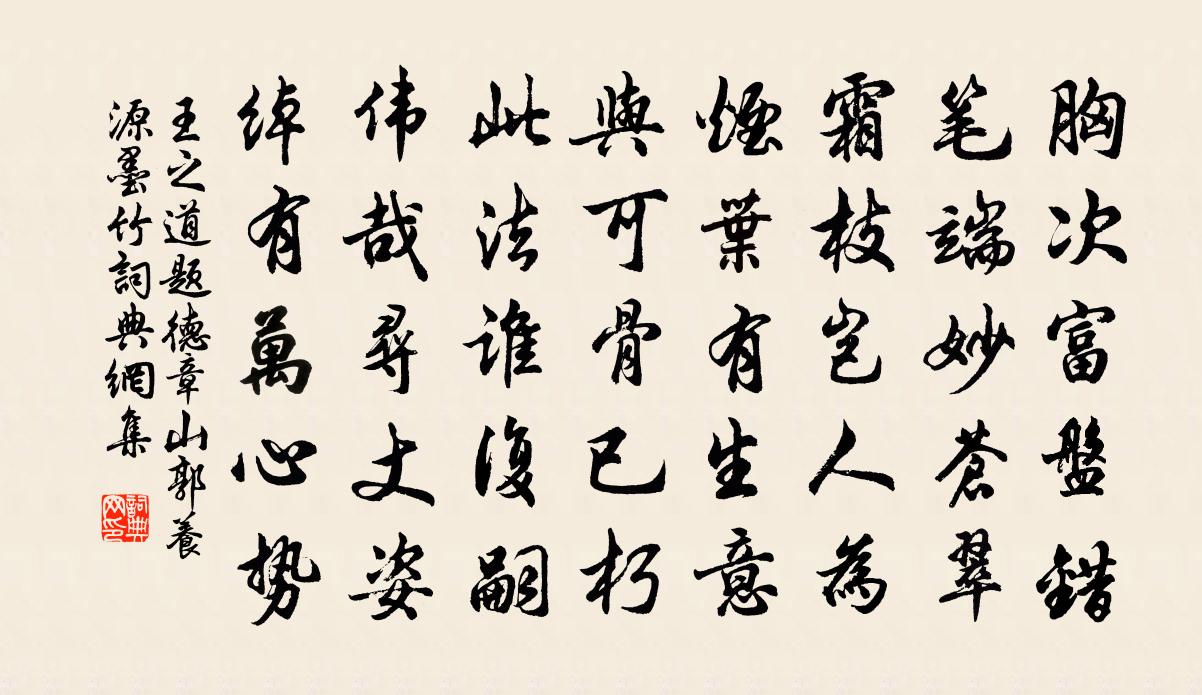 胸次富盤錯
笔端妙蒼翠
霜枝岂人為
煙葉有生意
與可骨已朽
此法谁復嗣
伟哉尋丈姿
绰有萬心势
王之道题德章山郭養
源墨竹詞典網集
詞典
网印